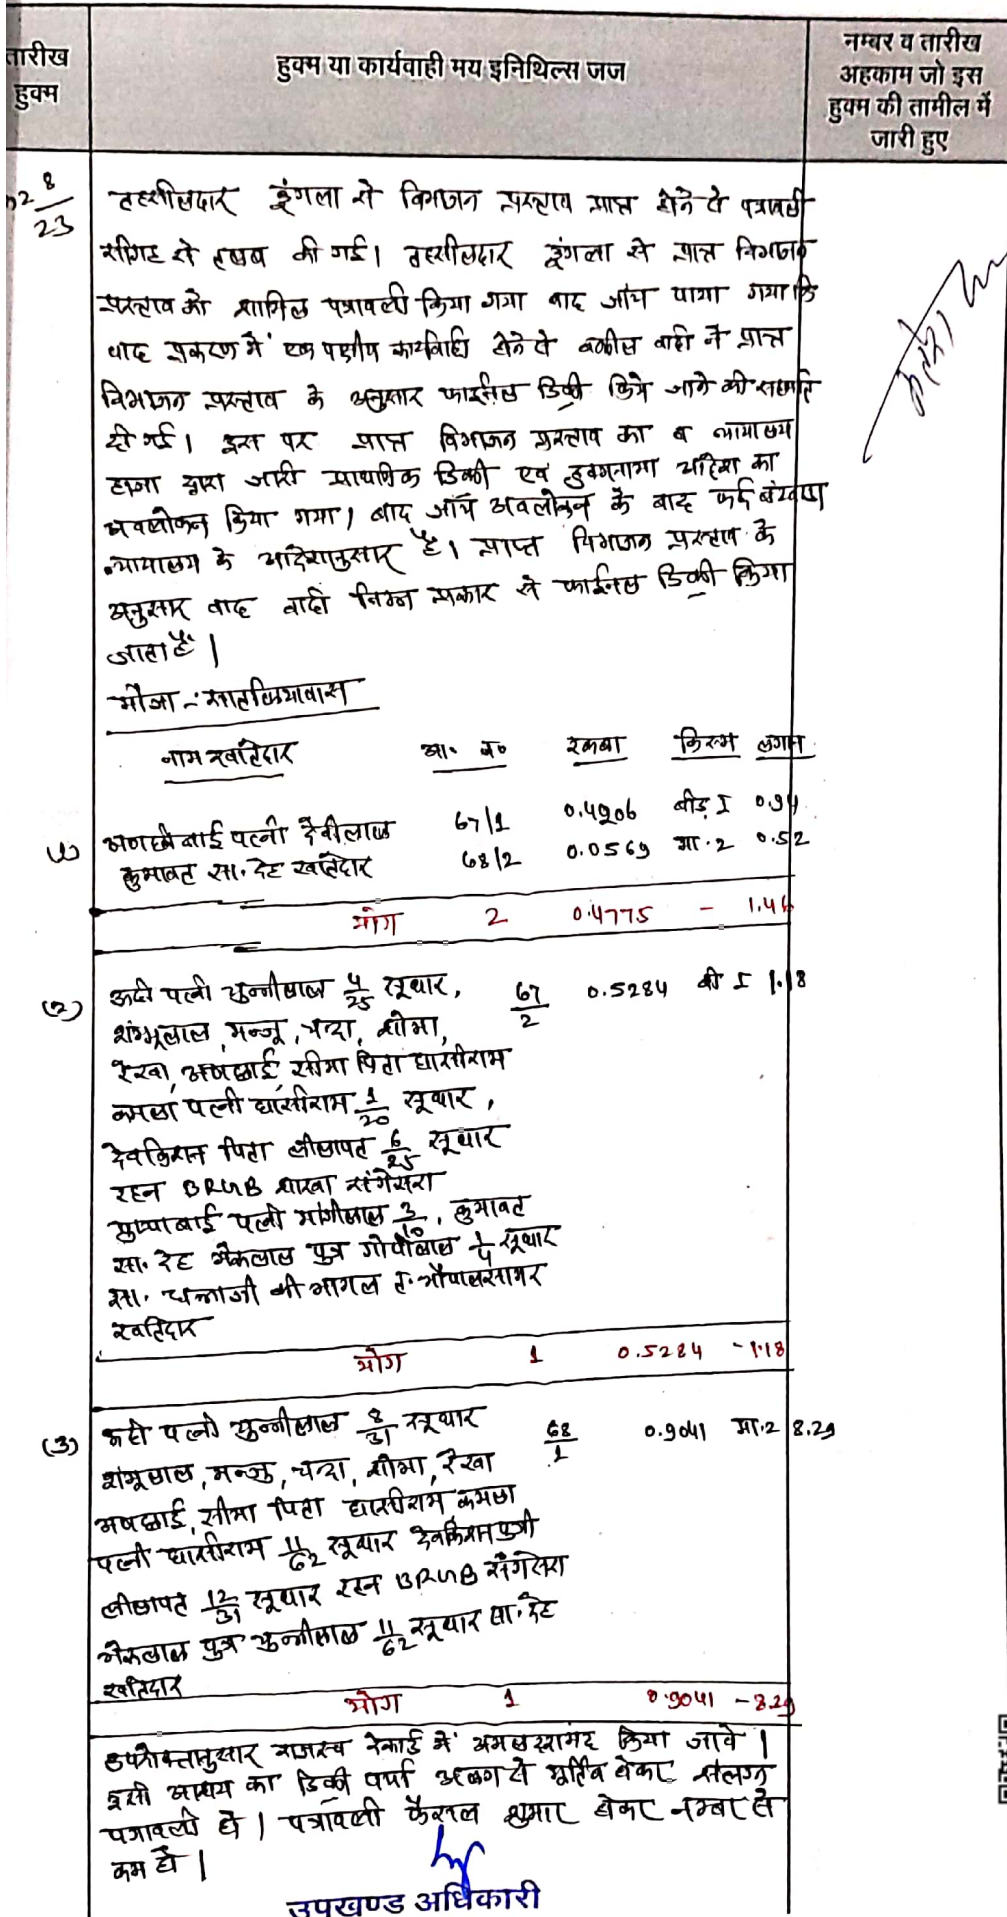 तारीख
हुक्म
हुक्म या कार्यवाही मय इनिथिल्स जज
नम्बर व तारीख
अहकाम जो इस
हुक्म की तामील में
जारी हुए
2 8/23
तहसीलदार डूंगला से विभाजन प्रस्ताव प्राप्त होने से पत्रावली
सीगह से तलब की गई। तहसीलदार डूंगला से प्राप्त विभाजन
प्रस्ताव को शामिल पत्रावली किया गया बाद जांच पाया गया कि
वाद प्रकरण में एक पक्षीय कार्यवाही होने से वकील वादी ने प्राप्त
विभाजन प्रस्ताव के अनुसार फाईनल डिक्री किये जाने की सहमति
दी गई। इस पर प्राप्त विभाजन प्रस्ताव का व न्यायालय
हाजा द्वारा जारी प्राथमिक डिक्री एवं हुक्मनामा आदेश का
अवलोकन किया गया। बाद जाँच अवलोकन के बाद
न्यायालय के आदेशानुसार है। प्राप्त विभाजन प्रस्ताव के
अनुसार वाद वादी निम्न प्रकार से फाईनल डिक्री किया
जाता है।
मौजा :-
नाम खातेदार आ. न. रकबा किस्म लगान
(1) बाई पत्नी देवीलाल 67/1 0.4206 बीड़ I 0.94
कुमावत सा. देह खातेदार 68/2 0.0569 मा.2 0.52
योग 2 0.4775 - 1.46
(2) पत्नी चुन्नीलाल 4/25 सुथार, 67/2 0.5284 बी I 1.18
शम्भूलाल, मन्जू, चन्दा, शोभा,
रेखा, सीमा पिता घासीराम
कमला पत्नी घासीराम 1/20 सुथार,
देवकिशन पिता 6/25 सुथार
रहन BRGB शाखा संगेसरा
पुष्पाबाई पत्नी मांगीलाल 3/10, कुमावत
सा. देह भैरूलाल पुत्र गोपीलाल 1/4 सुथार
सा. की भागल त. भोपालसागर
खातेदार
योग 1 0.5284 - 1.18
(3) पत्नी चुन्नीलाल 8/31 सुथार 68/1 0.9041 मा.2 8.29
शंभूलाल, मन्जु, चन्दा, शोभा, रेखा
सीमा पिता घासीराम, कमला
पत्नी घासीराम 11/62 सुथार देवकिशन
12/31 सुथार रहन BRGB संगेसरा
भैरूलाल पुत्र चुन्नीलाल 11/62 सुथार सा. देह
खातेदार
योग 1 0.9041 - 8.29
उपरोक्तानुसार राजस्व रेकार्ड में अमल दरामद किया जावे।
इसी आशय का डिक्री पर्चा अलग से मुर्तिब होकर संलग्न
पत्रावली हो। पत्रावली फैसल शुमार होकर नम्बर से
कम हो।
उपखण्ड अधिकारी